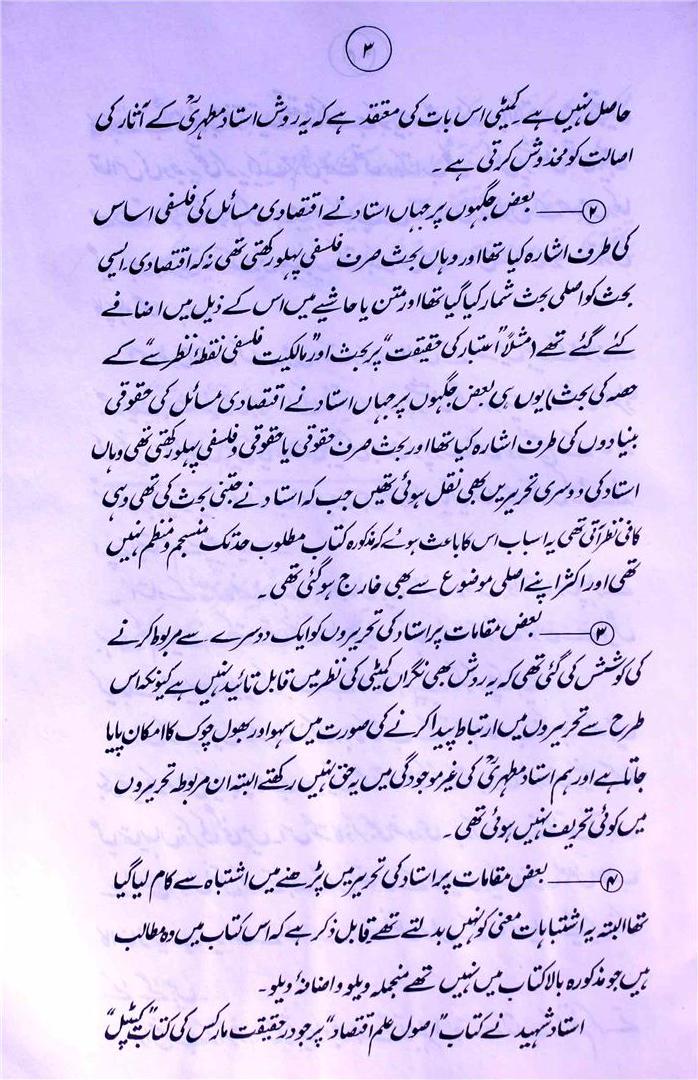 ۳
حاصل نہیں ہے۔ کمیٹی اس بات کی معتقد ہے کہ یہ روش استاد مطہریؒ کے آثار کی
اصالت کو مخدوش کرتی ہے۔
②—— بعض جگہوں پر جہاں استاد نے اقتصادی مسائل کی فلسفی اساس
کی طرف اشارہ کیا تھا اور وہاں بحث صرف فلسفی پہلو رکھتی تھی نہ کہ اقتصادی، ایسی
بحث کو اصلی بحث شمار کیا گیا تھا اور متن یا حاشیے میں اس کے ذیل میں اضافے
کئے گئے تھے (مثلاً "اعتبار کی حقیقت" پر بحث اور "مالکیت فلسفی نقطۂ نظر سے" کے
حصہ کی بحث) یوں ہی بعض جگہوں پر جہاں استاد نے اقتصادی مسائل کی حقوقی
بنیادوں کی طرف اشارہ کیا تھا اور بحث صرف حقوقی یا حقوقی و فلسفی پہلو رکھتی تھی وہاں
استاد کی دوسری تحریریں بھی نقل ہوئی تھیں جب کہ استاد نے جتنی بحث کی تھی وہی
کافی نظر آتی تھی یہ اسباب اس کا باعث ہوئے کہ مذکورہ کتاب مطلوب حد تک منسجم و منظم نہیں
تھی اور اکثر اپنے اصلی موضوع سے بھی خارج ہو گئی تھی۔
③—— بعض مقامات پر استاد کی تحریروں کو ایک دوسرے سے مربوط کرنے
کی کوشش کی گئی تھی کہ یہ روش بھی نگراں کمیٹی کی نظر میں قابل تائید نہیں ہے کیونکہ اس
طرح سے تحریروں میں ارتباط پیدا کرنے کی صورت میں سہو اور بھول چوک کا امکان پایا
جاتا ہے اور ہم استاد مطہریؒ کی غیر موجودگی میں یہ حق نہیں رکھتے البتہ ان مربوطہ تحریروں
میں کوئی تحریف نہیں ہوئی تھی۔
④—— بعض مقامات پر استاد کی تحریریں پڑھنے میں اشتباہ سے کام لیا گیا
تھا البتہ یہ اشتباہات معنی کو نہیں بدلتے تھے قابل ذکر ہے کہ اس کتاب میں وہ مطالب
ہیں جو مذکورہ بالا کتاب میں نہیں تھے منجملہ ویلو و اضافۂ ویلو۔
استاد شہید نے کتاب "اصول علم اقتصاد" پر جو درحقیقت مارکس کی کتاب "کیپٹل"